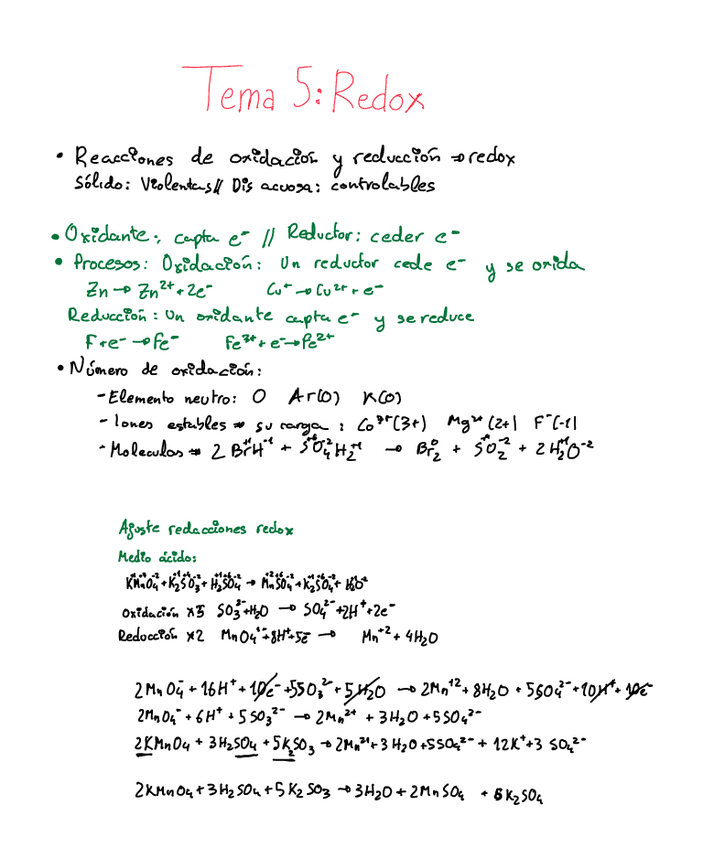 Tema 5: Redox
• Reacciones de oxidación y reducción → redox
Sólido: Violentas // Dis acuosa: controlables
• Oxidante: capta e⁻ // Reductor: ceder e⁻
• Procesos: Oxidación: Un reductor cede e⁻ y se oxida
Zn → Zn²⁺ + 2e⁻ Cu⁺ → Cu²⁺ + e⁻
Reducción: Un oxidante capta e⁻ y se reduce
F + e⁻ → Fe⁻ Fe³⁺ + e⁻ → Fe²⁺
• Número de oxidación:
- Elemento neutro: 0 Ar(0) K(0)
- Iones estables → su carga: Co³⁺(3+) Mg²⁺(2+) F⁻(-1)
- Moleculas → 2 Br⁺¹H⁻¹ + S⁺⁶O₄⁻²H₂⁺¹ → Br₂⁰ + S⁺⁴O₂⁻² + 2H₂⁺¹O⁻²
Ajuste redacciones redox
Medio ácido:
KMnO₄ + K₂SO₃ + H₂SO₄ → MnSO₄ + K₂SO₄ + H₂O
Oxidación x5 SO₃²⁻ + H₂O → SO₄²⁻ + 2H⁺ + 2e⁻
Reducción x2 MnO₄¹⁻ + 8H⁺ + 5e⁻ → Mn⁺² + 4H₂O
2MnO₄⁻ + 16H⁺ + 10e⁻ + 5SO₃²⁻ + 5H₂O → 2Mn⁺² + 8H₂O + 5SO₄²⁻ + 10H⁺ + 10e⁻
2MnO₄⁻ + 6H⁺ + 5SO₃²⁻ → 2Mn²⁺ + 3H₂O + 5SO₄²⁻
2KMnO₄ + 3H₂SO₄ + 5K₂SO₃ → 2Mn²⁺ + 3H₂O + 5SO₄²⁻ + 12K⁺ + 3 SO₄²⁻
2KMnO₄ + 3H₂SO₄ + 5K₂SO₃ → 3H₂O + 2MnSO₄ + 6K₂SO₄